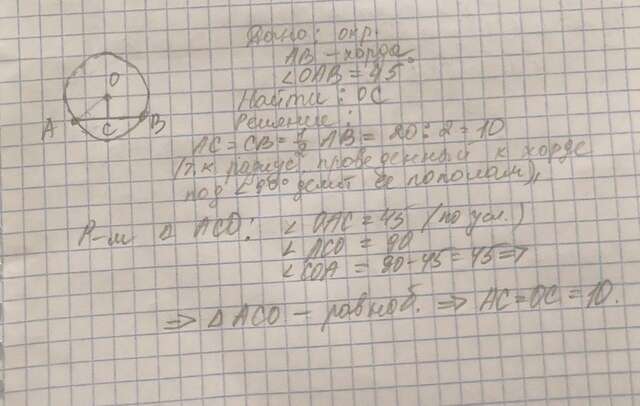 Дано: окр.
AB - хорда
<OAB = 45°
Найти: OC
Решение:
AC = CB = 1/2 AB = 20 : 2 = 10
(т.к радиус, проведенный к хорде
под <90° делит ее пополам),
O
A
C
B
Р-м △ ACO: < OAC = 45 (по усл.)
< ACO = 90
< COA = 90 - 45 = 45 =>
=> △ ACO - равноб. => AC = OC = 10.